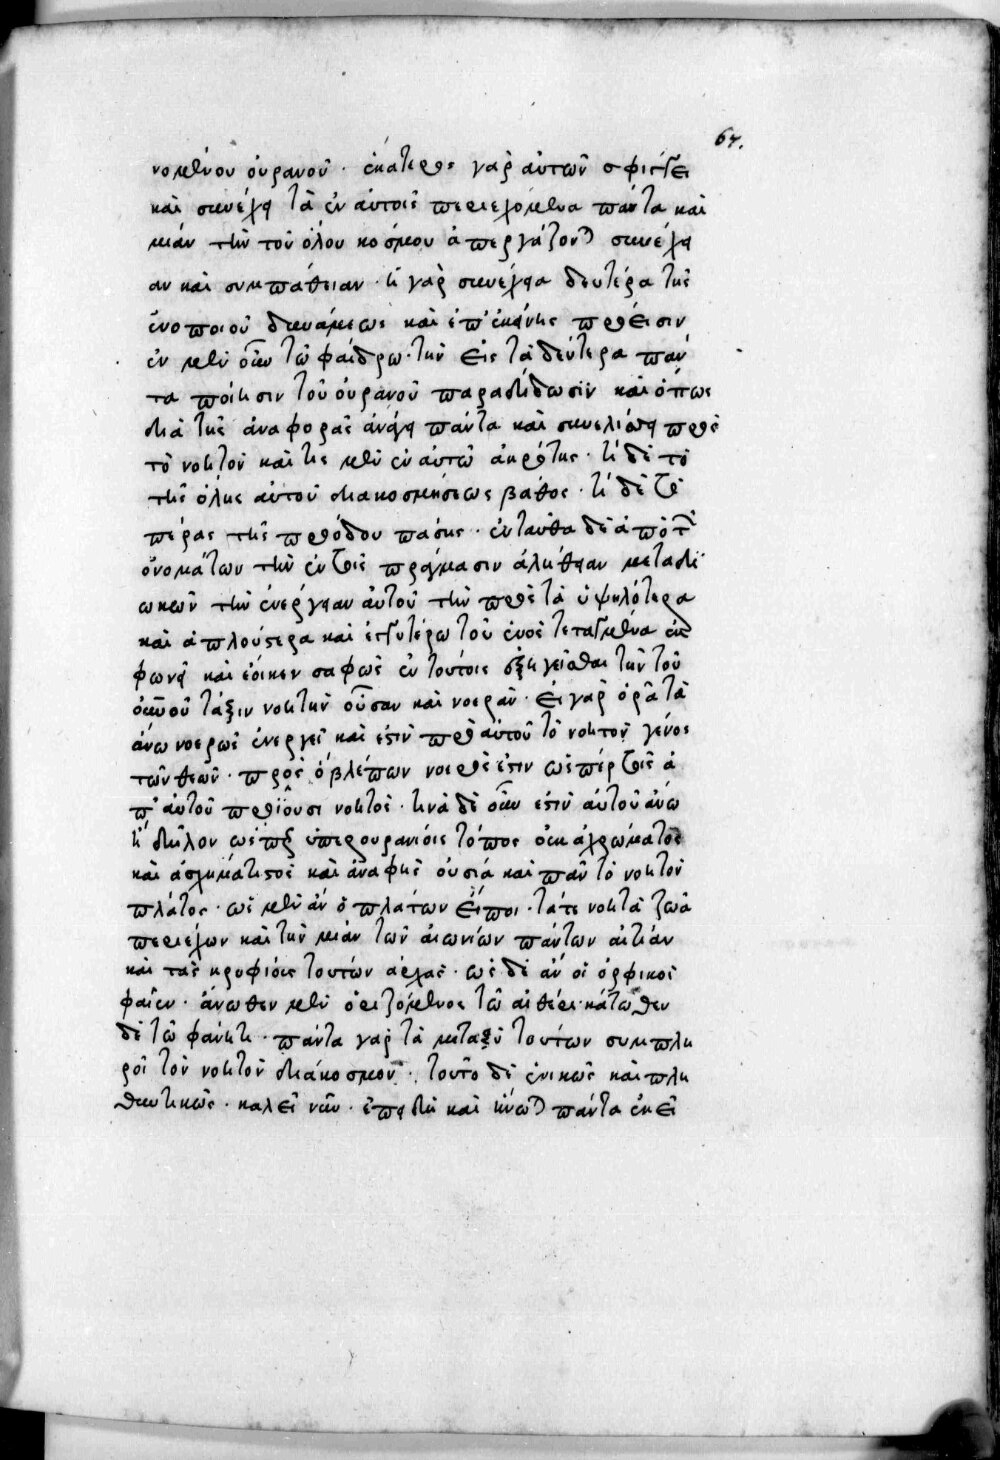 67.
νομένου οὐρανοῦ · ἑκάτερος γὰρ αὐτῶν σφίγγει
καὶ συνέχει τὰ ἐν αὐτοῖς περιεχόμενα πάντα καὶ
μίαν τὴν τοῦ ὅλου κόσμου ἀπεργάζονται συνέχει
αν καὶ συμπάθειαν · ἡ γὰρ συνέχεια δευτέρα τῆς
ἑνοποιοῦ δυνάμεως καὶ ἀπ' ἐκείνης πρόεισιν
ἐν μὲν οὖν τῷ φαίδρῳ · τὴν εἰς τὰ δεύτερα πάν
τα ποίησιν τοῦ οὐρανοῦ παραδίδωσιν καὶ ὅπως
διὰ τῆς ἀναφορᾶς ἀνάγει πάντα καὶ συνελίσσει πρὸς
τὸ νοητὸν καὶ τίς μὲν ἐν αὐτῷ ἀκρότης · τί δὲ τὸ
τῆς ὅλης αὐτοῦ διακοσμήσεως βάθος · τί δὲ τὸ
πέρας τῆς προόδου πάσης · ἐνταῦθα δὲ ἀπὸ τῶν
ὀνομάτων τὴν ἐν τοῖς πράγμασιν ἀλήθειαν μεταδι
ωκων τὴν ἐνέργειαν αὐτοῦ τὴν πρὸς τὰ ὑψηλότερα
καὶ ἁπλούστερα καὶ ἐγγυτέρω τοῦ ἑνὸς τεταγμένα ἐκ
φωνεῖ καὶ ἔοικεν σαφῶς ἐν τούτοις ἐξηγεῖσθαι τὴν τοῦ
οὐρανοῦ τάξιν νοητὴν οὖσαν καὶ νοεράν · εἰ γὰρ ὁρᾷ τὰ
ἄνω νοερῶς ἐνεργεῖ καὶ ἔστιν πρὸ αὐτοῦ τὸ νοητὸν γένος
τῶν θεῶν · πρὸς ὃ βλέπων νοερός ἐστιν ὥσπερ τοῖς ἀ
π' αὐτοῦ προϊοῦσι νοητός · τίνα δὲ οὖν ἐστὶν αὐτοῦ ἄνω
ἢ δῆλον ὥσπερ ὑπερουράνιος τόπος οὐκ ἀχρώματος
καὶ ἀσχημάτιστος καὶ ἀναφὴς οὐσία καὶ πᾶν τὸ νοητὸν
πλάτος · ὡς μὲν ἂν ὁ πλάτων εἴποι · τά τε νοητὰ ζῷα
περιέχων καὶ τὴν μίαν τῶν αἰωνίων πάντων αἰτίαν
καὶ τὰς κρυφίους τούτων ἀρχάς · ὡς δὲ ἂν οἱ ὀρφικοὶ
φαῖεν · ἄνωθεν μὲν ὁριζόμενος τῷ αἰθέρι · κάτωθεν
δὲ τῷ φάνητι · πάντα γὰρ τὰ μεταξὺ τούτων συμπλη
ροῖ τὸν νοητὸν διάκοσμον · τοῦτο δὲ ἑνικῶς καὶ πλη
θυντικῶς · καλεῖ νῦν · ἐπειδὴ καὶ ἥνωται πάντα ἐκεῖ